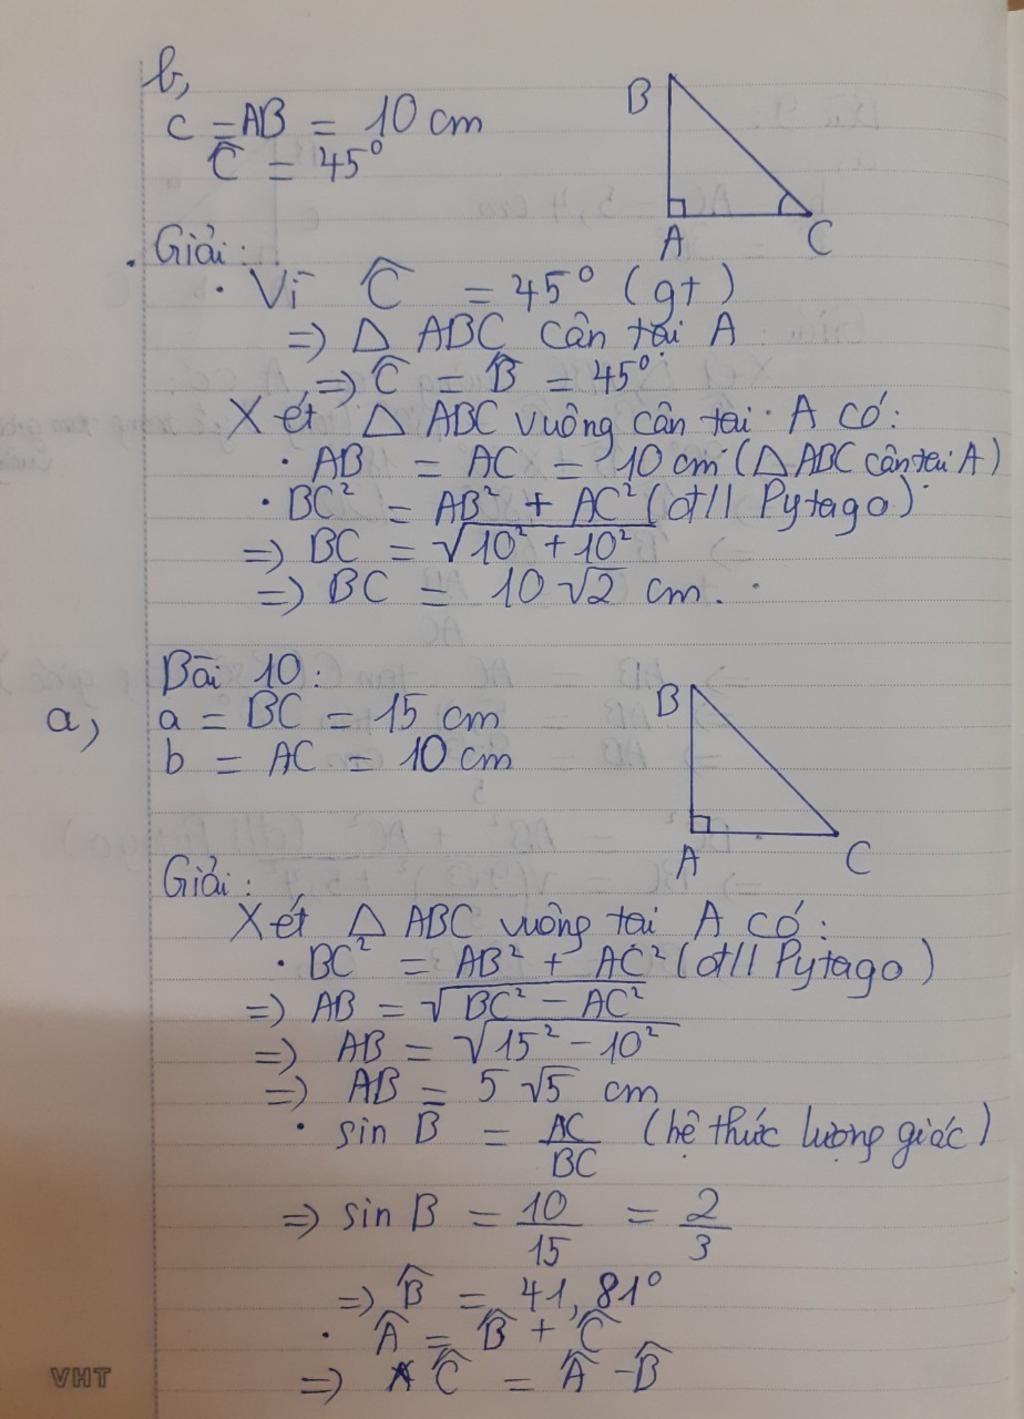 b,
c = AB = 10 cm
Ĉ = 45°
B
A
C
Giải:
· Vì Ĉ = 45° (gt)
=> △ ABC cân tại A
=> Ĉ = B̂ = 45°
Xét △ ABC vuông cân tại A có:
· AB = AC = 10 cm (△ ABC cân tại A)
· BC² = AB² + AC² (đ/l Pytago)
=> BC = √(10² + 10²)
=> BC = 10√2 cm.
Bài 10:
a, a = BC = 15 cm
b = AC = 10 cm
B
A
C
Giải:
Xét △ ABC vuông tại A có:
· BC² = AB² + AC² (đ/l Pytago)
=> AB = √(BC² - AC²)
=> AB = √(15² - 10²)
=> AB = 5√5 cm
· sin B = AC/BC (hệ thức lượng giác)
=> sin B = 10/15 = 2/3
=> B̂ = 41,81°
· Â = B̂ + Ĉ
=> Ĉ = Â - B̂
VHT